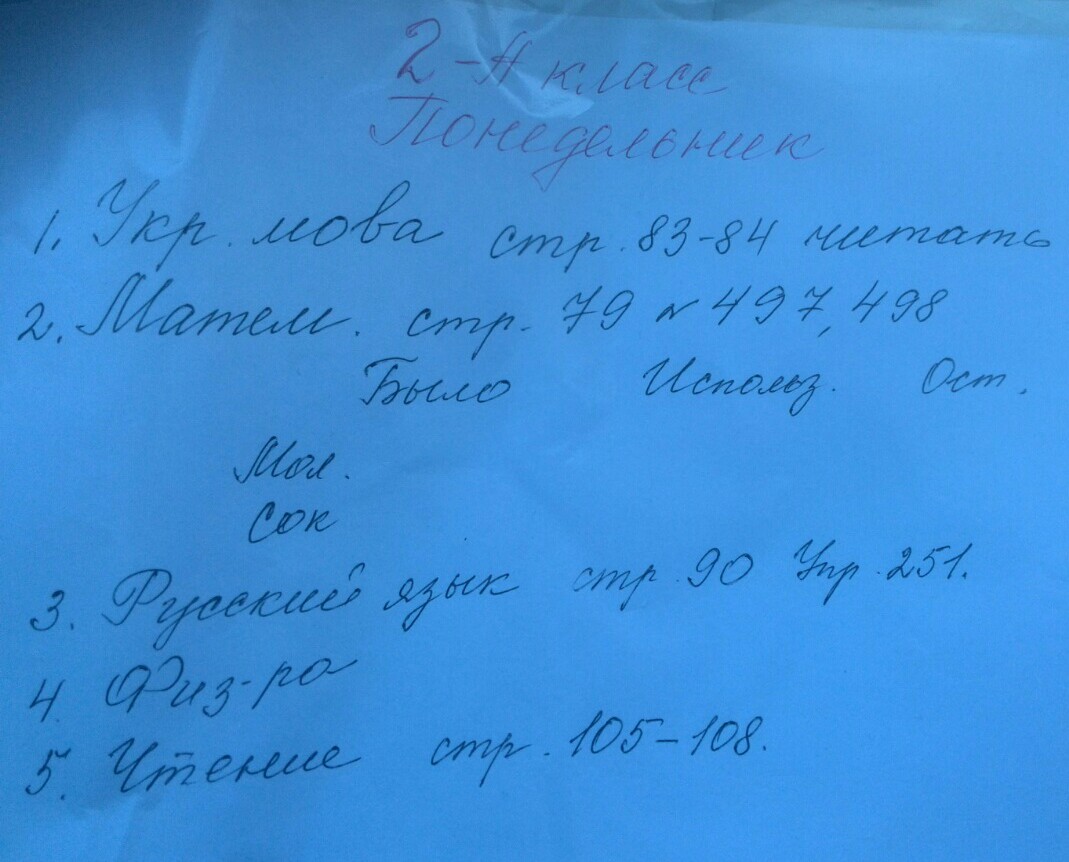 2-А класс
Понедельник
1. Укр. мова стр. 83-84 читать
2. Матем. стр. 79 № 497, 498
Было Использ. Ост.
Мол.
Сок
3. Русский язык стр. 90 Упр. 251.
4. Физ-ра
5. Чтение стр. 105-108.